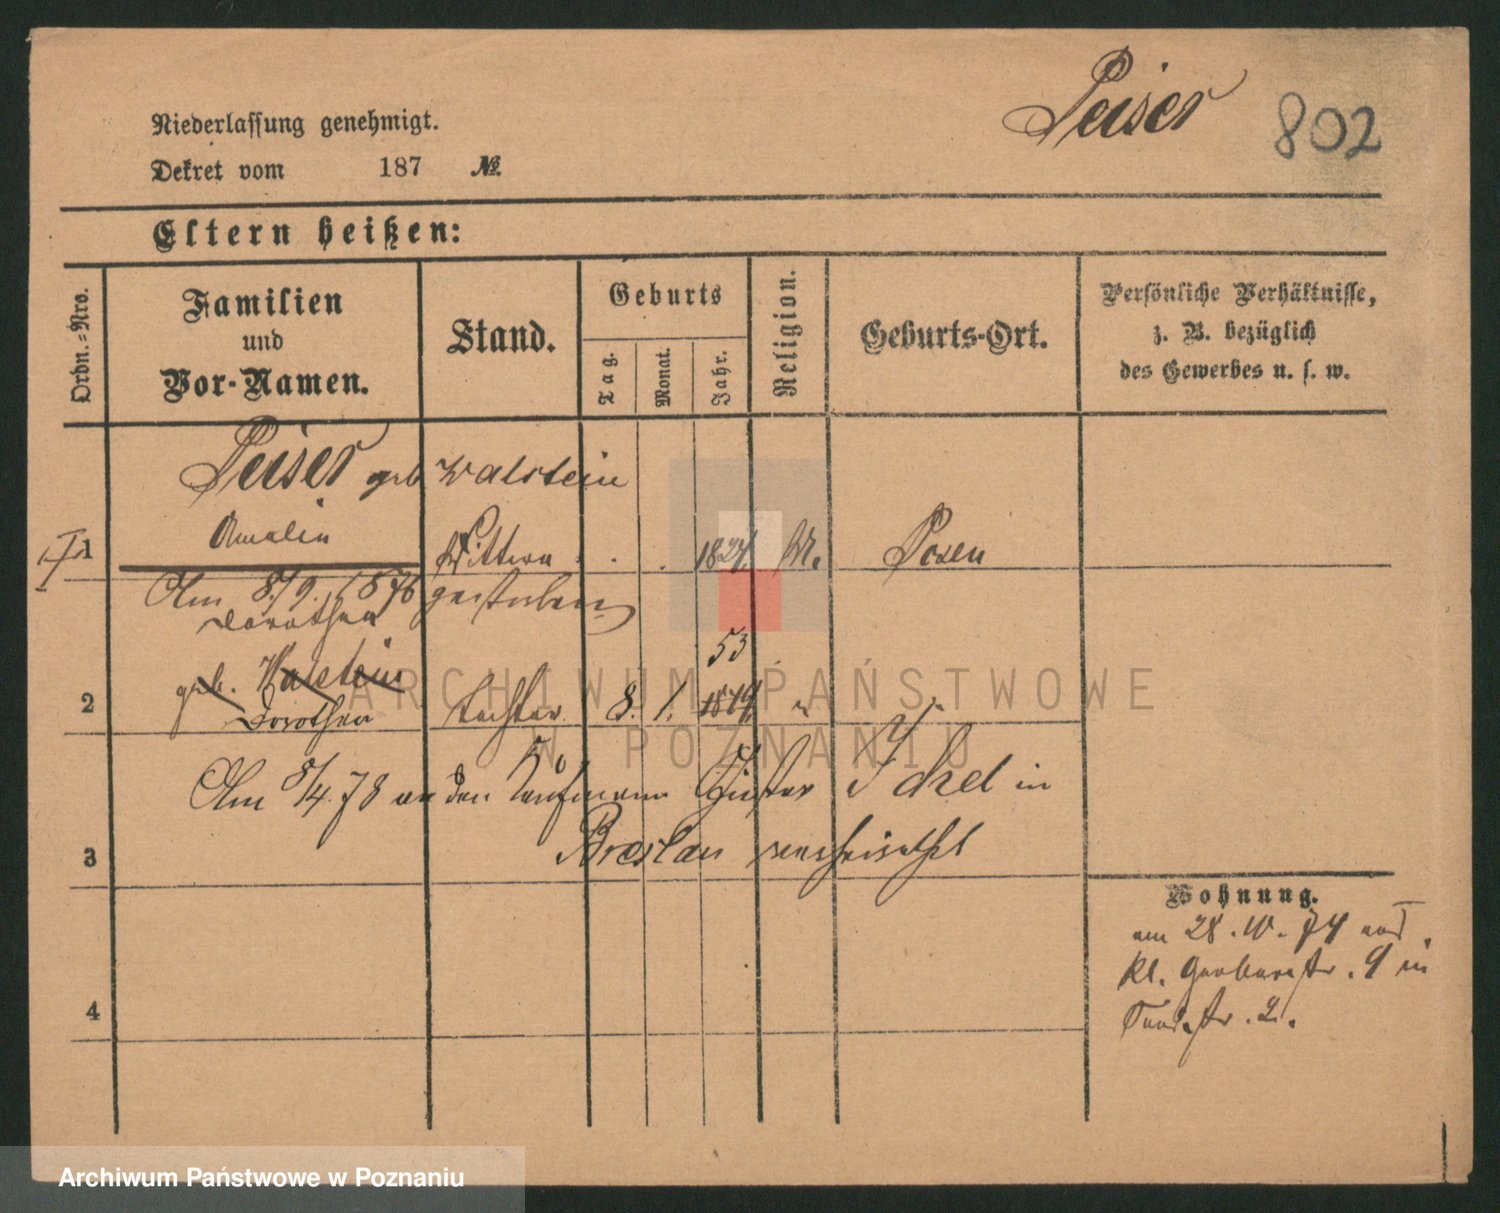 Peiser 802
Niederlassung genehmigt.
Dekret vom 187 №.
Eltern heißen:
Ordn.-Nro.
Familien
und
Vor-Namen.
Stand.
Geburts
Tag.
Monat.
Jahr.
Religion.
Geburts-Ort.
Persönliche Verhältnisse,
z. B. bezüglich
des Gewerbes u. s. w.
Peiser geb Walstein
1 Amalie Wittwe 1827 M. Posen
Am 8/9. 1876 gestorben
Dorothea
53
geb. Walstein
2 Dorothea Tochter 8. 1.
Am 5/4. 78 an den Kaufmann Gustav in
3 Breslau verheirathet
Wohnung.
am 28. 10. 74 aus
kl. Gerberstr. 9 in
str. 2.
4
ARCHIWUM PAŃSTWOWE
W POZNANIU
Archiwum Państwowe w Poznaniu